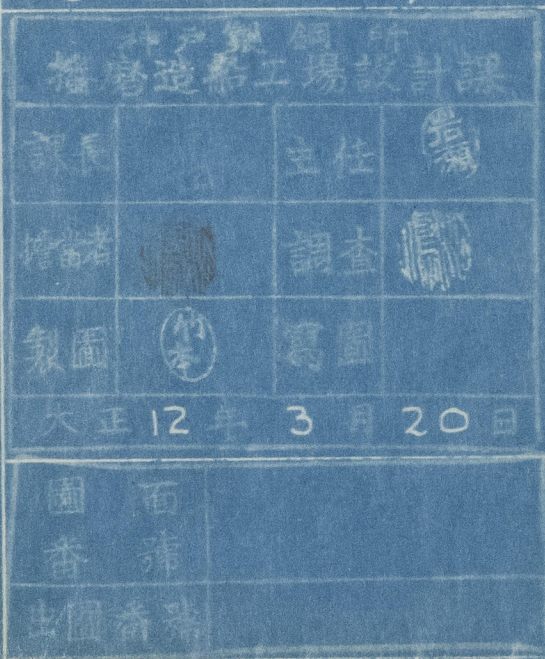 神戸製鋼所
播磨造船工場設計課
課長 主任
擔當者 調査
製圖 竹本 寫圖
大正12年3月20日
圖面
番號
出圖番號